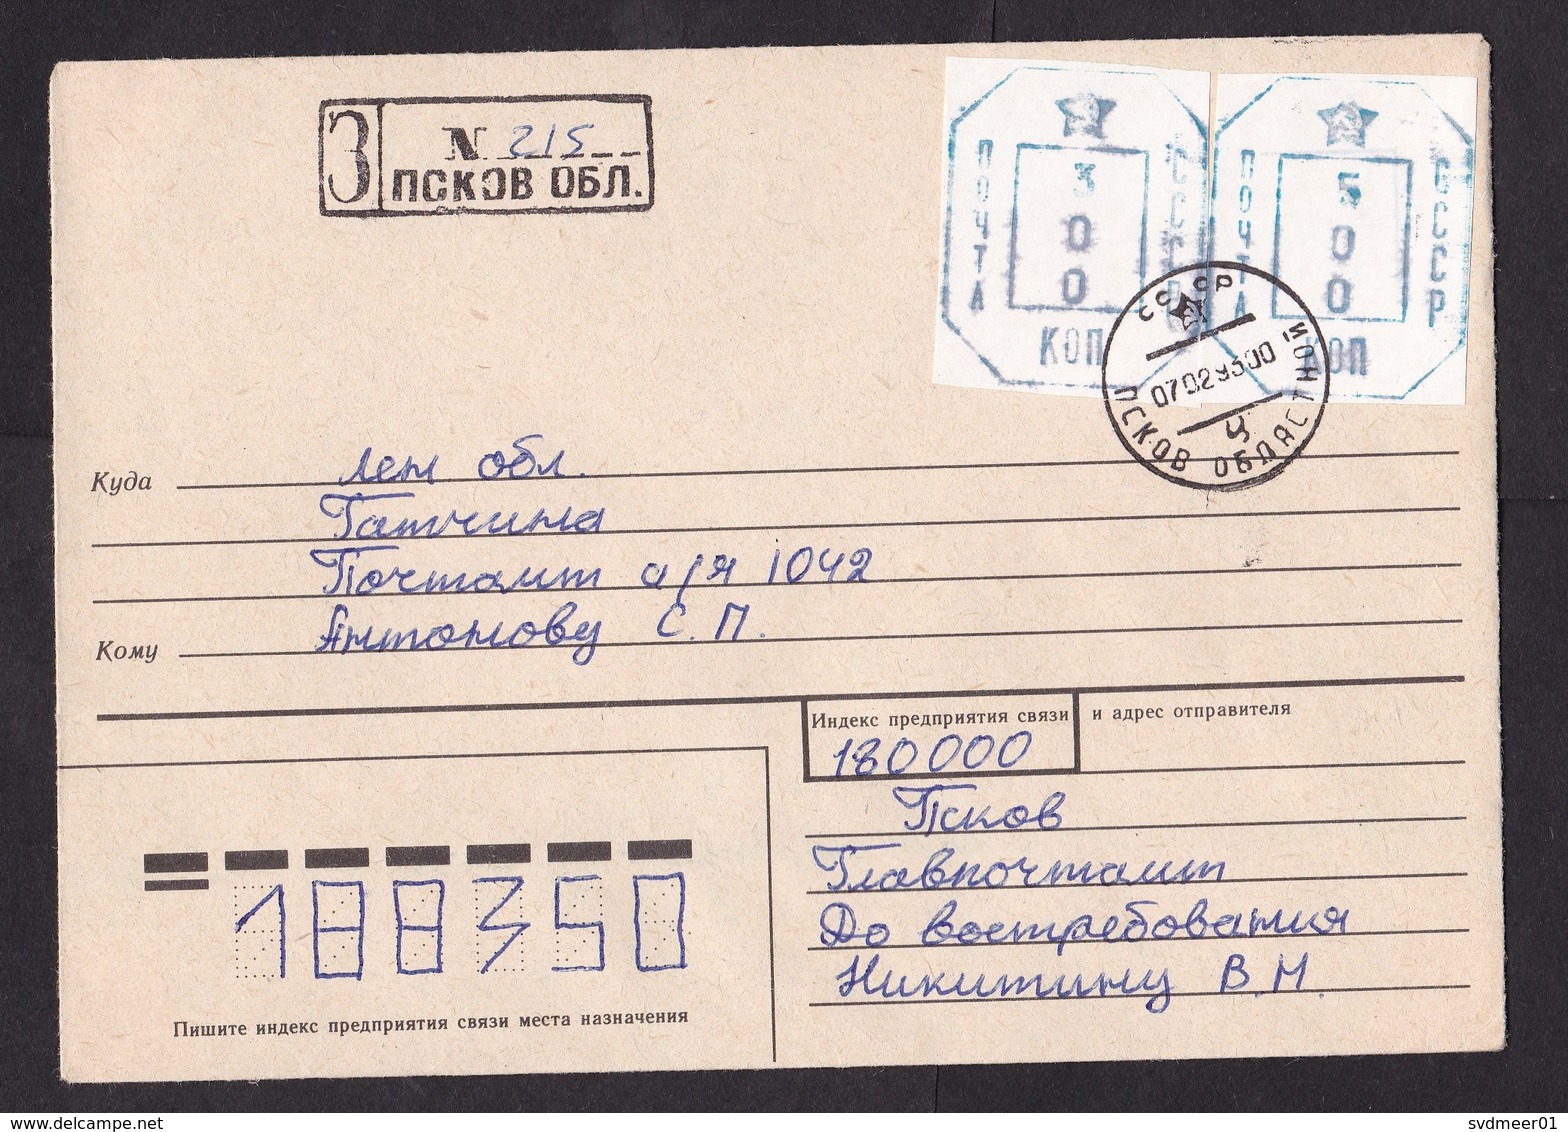 З
N 215
ПСКОВ ОБЛ.
ПОЧТА
3
0
0
СССР
КОП
ПОЧТА
5
0
0
СССР
КОП
СССР
07029300
Ц
ПСКОВ ОБЛАСТНОЙ
Куда
Лен обл.
Гатчина
Почтамт а/я 1042
Кому
Антонову С. П.
Индекс предприятия связи
и адрес отправителя
180000
Псков
Главпочтамт
До востребования
Никитину В. Н.
188350
Пишите индекс предприятия связи места назначения
DELCAMPE.NET
svdmeer01